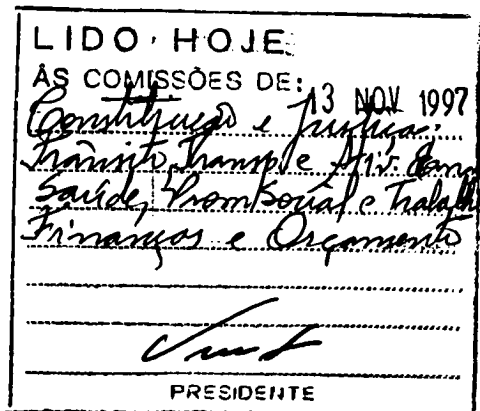 LIDO HOJE
ÀS COMISSÕES DE:
13 NOV 1997
Constituição e Justiça;
Trânsito, Transp. e Ativ. Econ
Saúde, Prom Social e Trabalh
Finanças e Orçamento
PRESIDENTE